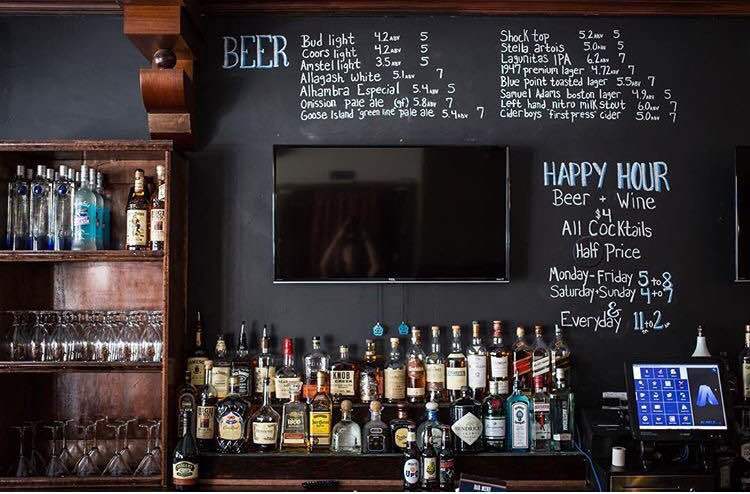 BEER
Bud light 4.2 ABV 5
Coors light 4.2 ABV 5
Amstel light 3.5 ABV 5
Allagash White 5.1 ABV 7
Alhambra Especial 5.4 ABV 5
Omission pale ale (gf) 5.8 ABV 7
Goose Island 'green line' pale ale 5.4 ABV 7
Shock top 5.2 ABV 5
Stella artois 5.0 ABV 5
Lagunitas IPA 6.2 ABV 7
1947 premium lager 4.72 ABV 7
Blue point toasted lager 5.5 ABV 7
Samuel Adams boston lager 4.9 ABV 5
Left hand nitro milk stout 6.0 ABV 7
Ciderboys 'first press' cider 5.0 ABV 7
HAPPY HOUR
Beer + Wine
$4
All Cocktails
Half Price
Monday-Friday 5 to 8
Saturday+Sunday 4 to 7
&
Everyday 11 to 2
KNOB
CREEK
1800
HENDRICK'S